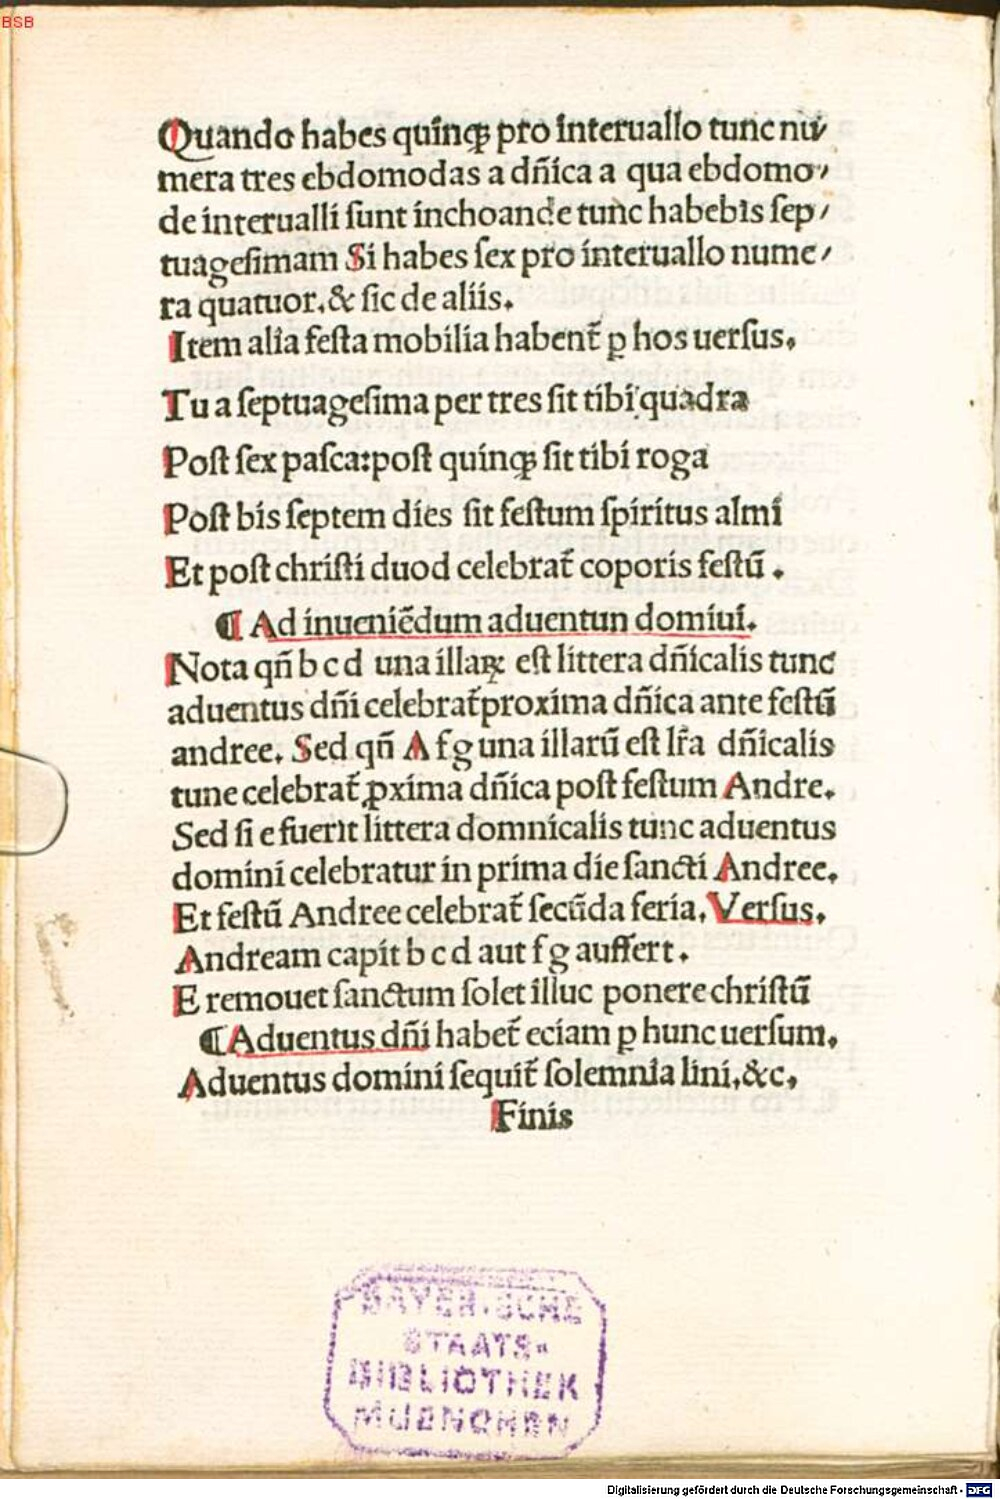 BSB
Quando habes quinqꝫ pro interuallo tunc nu⸗
mera tres ebdomodas a dñica a qua ebdomo⸗
de interualli sunt inchoande tunc habebis sep⸗
tuagesimam Si habes sex pro interuallo nume⸗
ra quatuor.& sic de aliis.
Item alia festa mobilia habent̃ ꝑ hos uersus.
Tu a septuagesima per tres sit tibi quadra
Post sex pasca:post quinqꝫ sit tibi roga
Post bis septem dies sit festum spiritus almi
Et post christi duod celebrat̃ coporis festū .
¶ Ad inueniẽdum aduentun domiui.
Nota qñ b c d una illaꝝ est littera dñicalis tunc
aduentus dñi celebrat̃ proxima dñica ante festū
andree. Sed qñ A f g una illarū est lr̃a dñicalis
tune celebrat̃ ꝓxima dñica post festum Andre.
Sed si e fuerit littera domnicalis tunc aduentus
domini celebratur in prima die sancti Andree.
Et festū Andree celebrat̃ secūda feria. Versus.
Andream capit b c d aut f g auffert.
E remouet sanctum solet illuc ponere christū
¶ Aduentus dñi habet̃ eciam ꝑ hunc uersum.
Aduentus domini sequit̃ solemnia lini.&c.
Finis
BAYERISCHE
STAATS-
BIBLIOTHEK
MUENCHEN
Digitalisierung gefördert durch die Deutsche Forschungsgemeinschaft - DFG